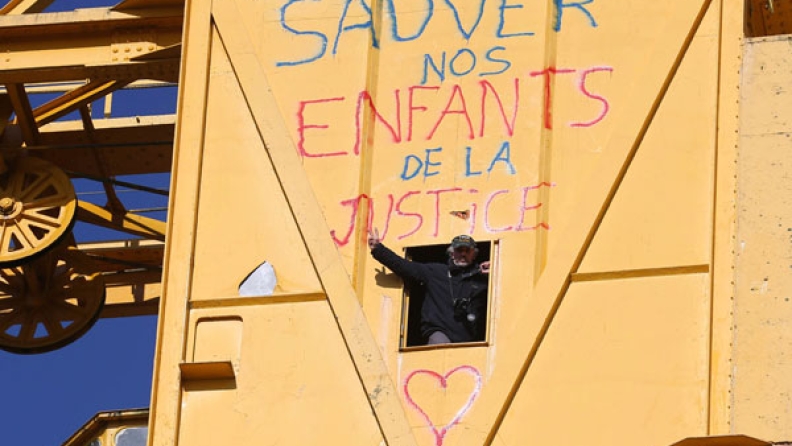 SAUVER
NOS
ENFANTS
DE LA
JUSTICE